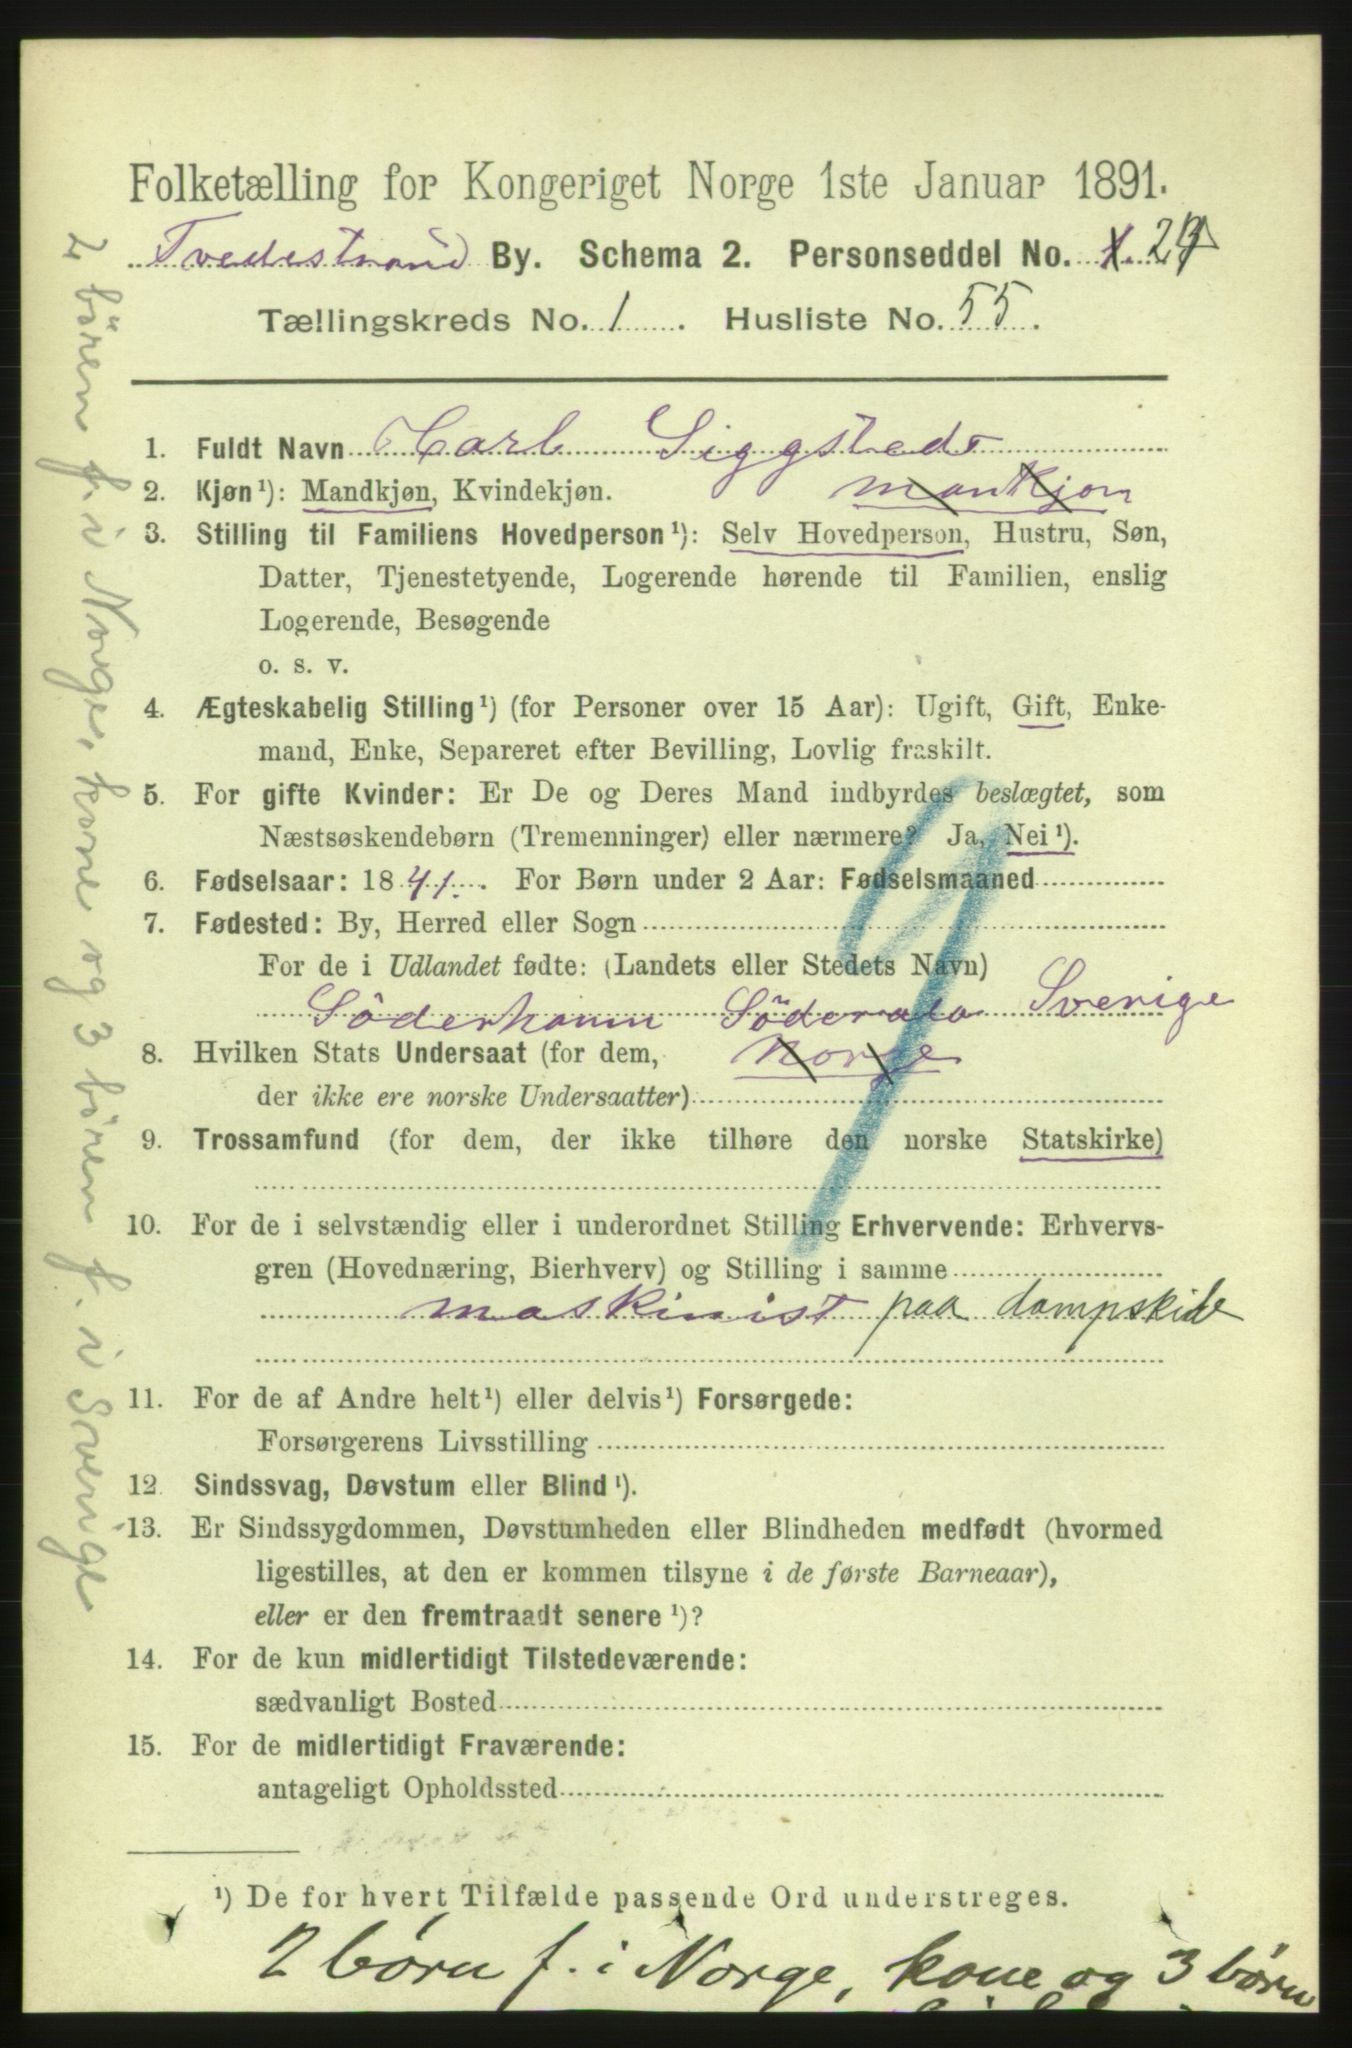 Folketælling for Kongeriget Norge 1ste Januar 1891.
Tvedestrand By. Schema 2. Personseddel No. 1. 2
Tællingskreds No. 1. Husliste No. 55.
1. Fuldt Navn Carl Siggstedt
2. Kjøn¹): Mandkjøn, Kvindekjøn. mankjøn
3. Stilling til Familiens Hovedperson¹): Selv Hovedperson, Hustru, Søn,
Datter, Tjenestetyende, Logerende hørende til Familien, enslig
Logerende, Besøgende
o. s. v.
4. Ægteskabelig Stilling¹) (for Personer over 15 Aar): Ugift, Gift, Enke-
mand, Enke, Separeret efter Bevilling, Lovlig fraskilt.
5. For gifte Kvinder: Er De og Deres Mand indbyrdes beslægtet, som
Næstsøskendebørn (Tremenninger) eller nærmere? Ja, Nei¹).
6. Fødselsaar: 1841. For Børn under 2 Aar: Fødselsmaaned
7. Fødested: By, Herred eller Sogn
For de i Udlandet fødte: (Landets eller Stedets Navn)
Söderhamn Söderala Sverige
8. Hvilken Stats Undersaat (for dem, Norge
der ikke ere norske Undersaatter)
9. Trossamfund (for dem, der ikke tilhøre den norske Statskirke)
10. For de i selvstændig eller i underordnet Stilling Erhvervende: Erhvervs-
gren (Hovednæring, Bierhverv) og Stilling i samme
maskinist paa dampskibe
11. For de af Andre helt¹) eller delvis¹) Forsørgede:
Forsørgerens Livsstilling
12. Sindssvag, Døvstum eller Blind¹).
13. Er Sindssygdommen, Døvstumheden eller Blindheden medfødt (hvormed
ligestilles, at den er kommen tilsyne i de første Barneaar),
eller er den fremtraadt senere¹)?
14. For de kun midlertidigt Tilstedeværende:
sædvanligt Bosted
15. For de midlertidigt Fraværende:
antageligt Opholdssted
¹) De for hvert Tilfælde passende Ord understreges.
2 børn f. i Norge, kone og 3 børn
2 bören f. i Norge, kone og 3 bören f. i Sverige
9